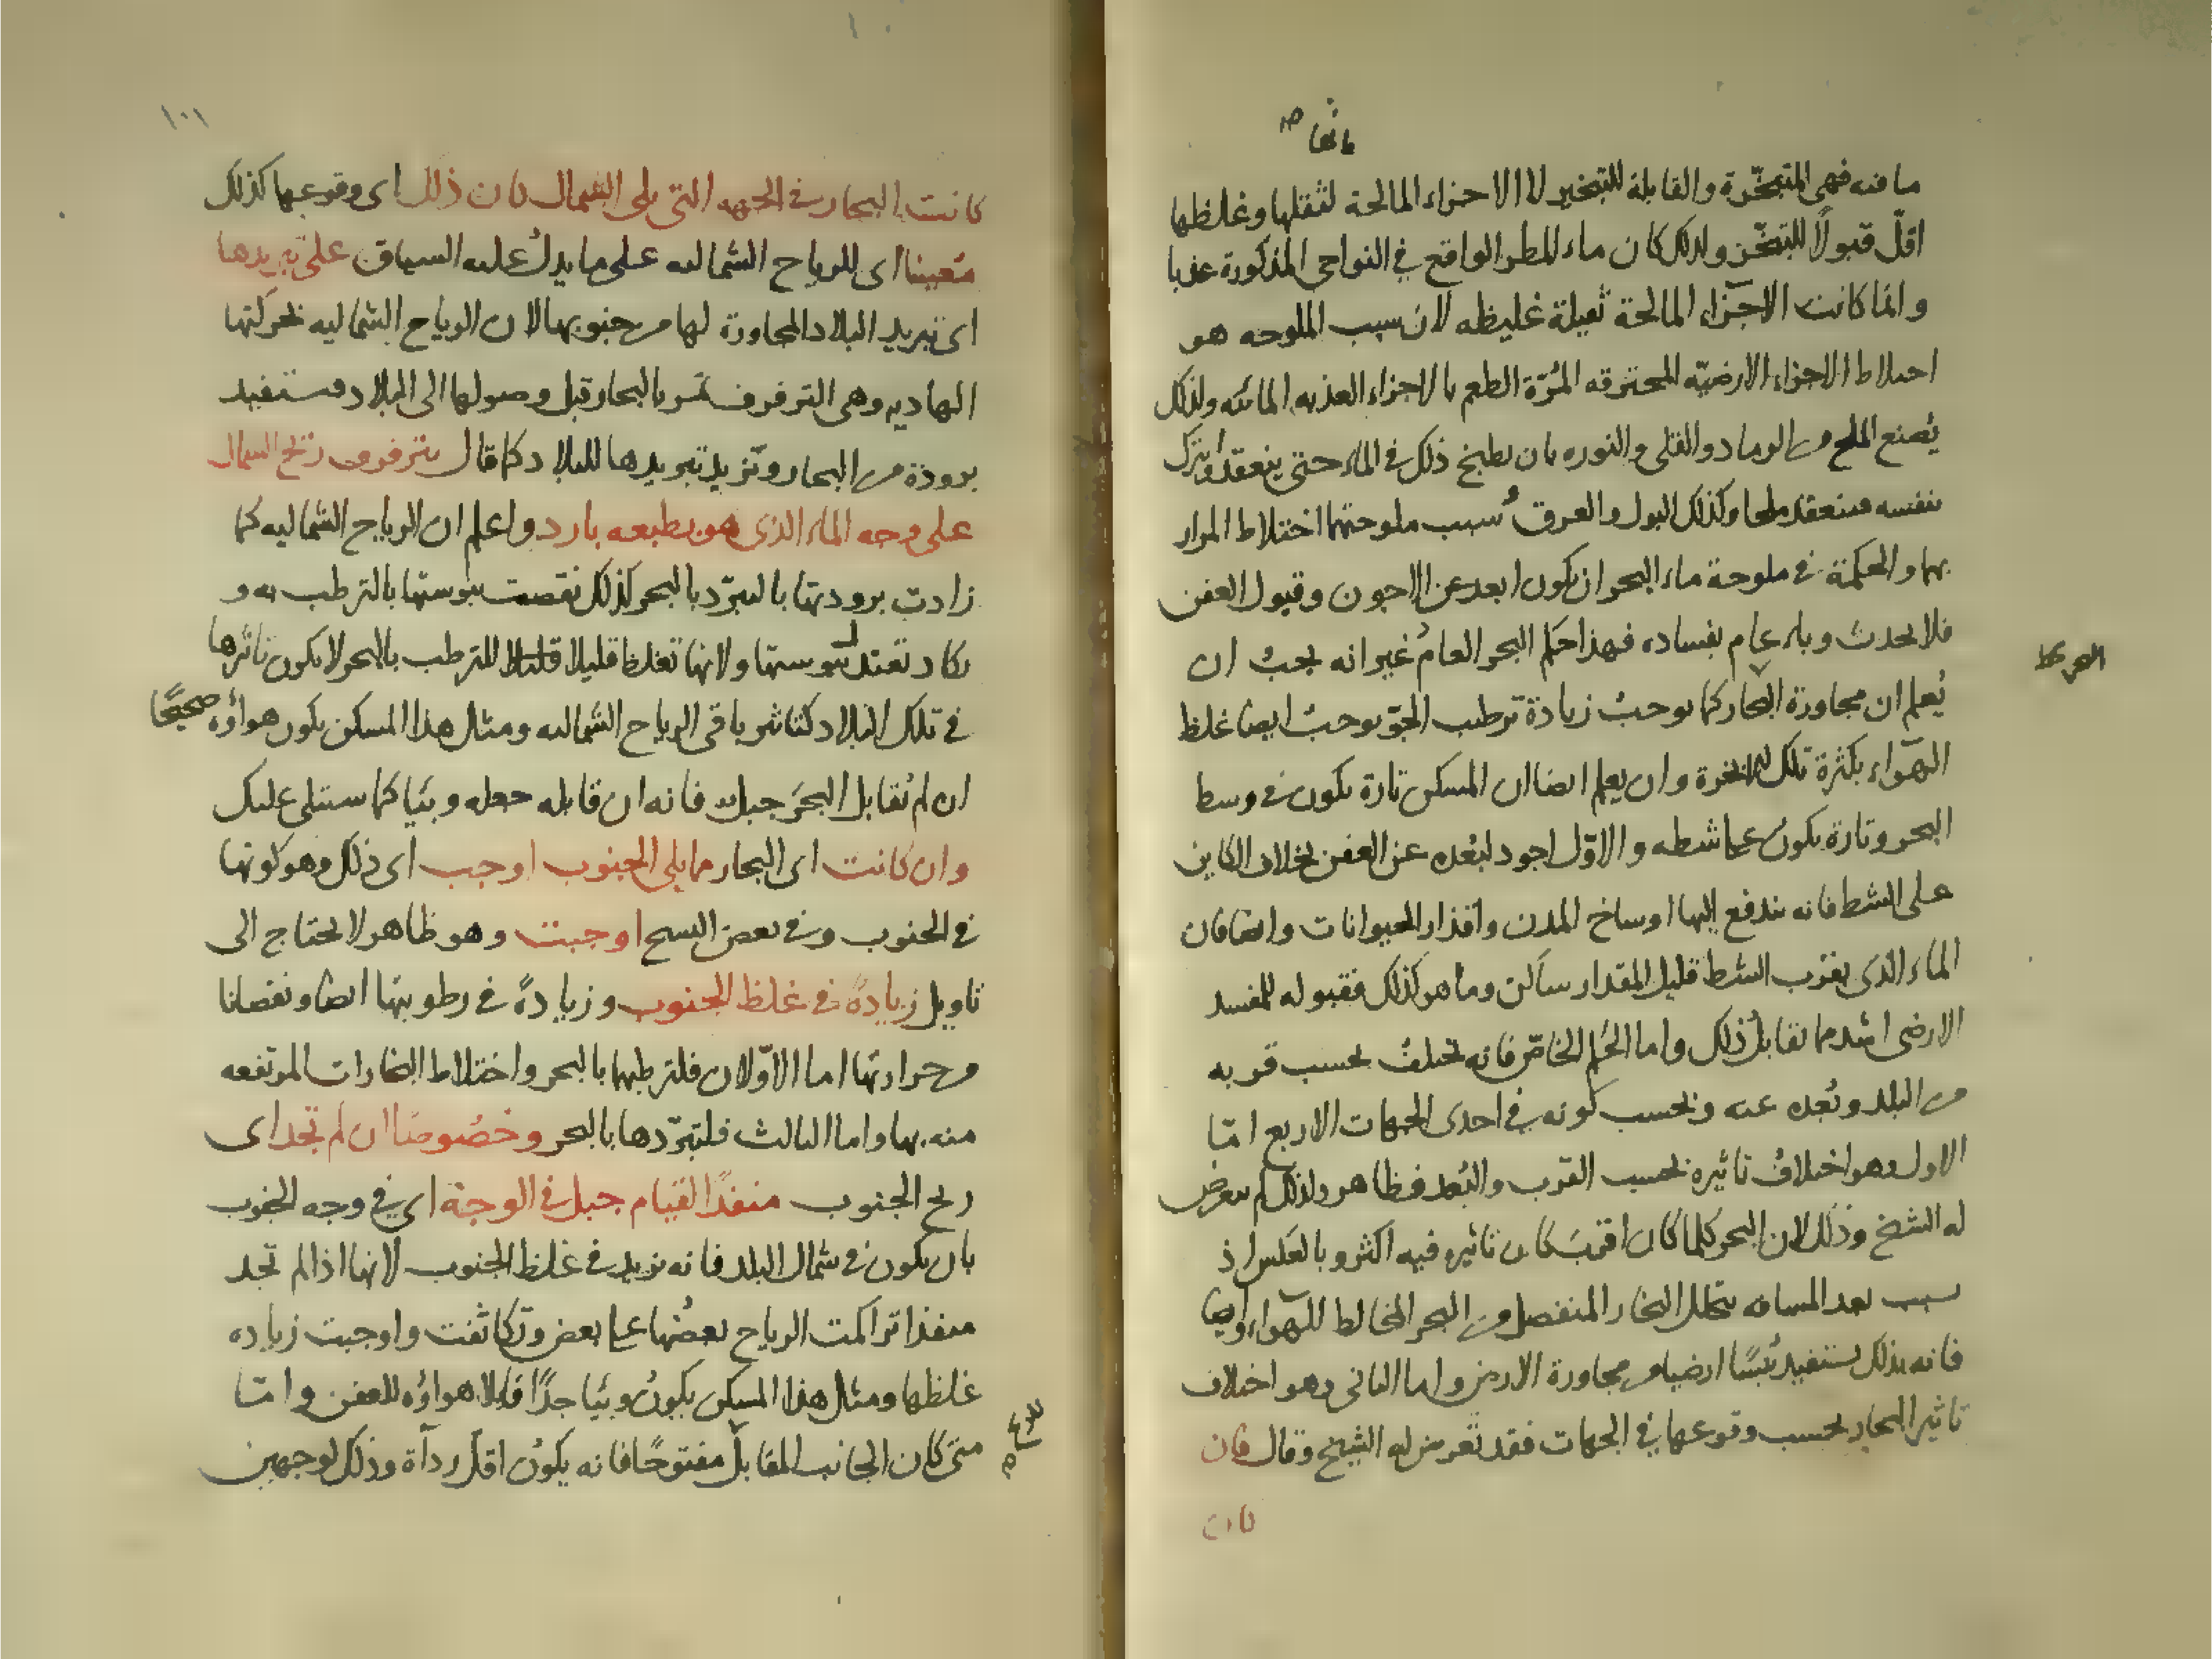 مانها صح
ما فيه فهى المتبخّرة والقابلة للتبخير لا الاجزاء المالحة لثقلها وغلظها
اقلّ قبولًا للتبخّر ولذلك كان ماء المطر الواقع في النواحى المذكورة عذبا
وانما كانت الاجزاء المالحة ثقيلة غليظه لان سبب الملوحه هو
احتلاط الاجزاء الارضيّه المحترقه المُرّة الطعم بالاجزاء العذبه المائيه ولذلك
يُصنع الملح من الرماد والقلى والنوره بان يطبخ ذلك فى الماء حتى ينعقد او يترك
بنفسه فينعقد ملحا وكذلك البول والعرق سبب ملوحتهما اختلاط المرار
بهما والحكمة فى ملوحة ماء البحر ان يكون ابعد عن الاجون وقبول العفن
فلا يحدث وباء عام بفساده فهذا حكم البحر العام غير انه يجب ان
يُعلم ان مجاورة البحار كما يوجبُ زيادة ترطيب الجوّ يوجبُ ايضا غلظ
الهواء بكثرة تلك الابخرة وان يعلم ايضا ان المسكن تارة يكون فى وسط
البحر وتارة يكون على شطه والاوّل اجود لبُعده عن العفن بخلاف الكاين
على الشط فانه يندفع اليها اوساخ المدن واقذار الحيوانات وايضا فان
الماء الذى بقرب الشط قليل المقدار ساكن وما هو كذلك فقبوله للمفسد
الارضى اشد مما يقابل ذلك واما الحُكم الخاصّ فانه يختلفُ بحسب قربه
من البلد وبُعده عنه وبحسب كونه في احدى الجهات الاربع امّا
الاول وهو اختلافُ تاثيره بحسب القرب والبُعد فظاهر ولذلك لم يتعرض
له الشيخ وذلك لان البحر كلما كان اقرب كان تاثيره فيه اكثر وبالعكس اذ
بسبب بعد المسافه يتحلل البخار المنفصل من البحر المخالط للهواء وايضا
فانه بذلك يستفيد يُبسًا ارضيا من مجاورة الارض واما الثانى وهو اختلاف
تاثير البحار بحسب وقوعها في الجهات فقد تعرض له الشيخ وقال فان
فان
١٠١
كانت البحار فى الجهه التى يلى الشمال كان ذلك اى وقوعها كذلك
مُعينا اى للرياح الشماليه على ما يدل عليه السياق على تبريدها
اى تبريد البلاد المجاورة لها من جنوبها لان الرياح الشماليه بحركتها
الهاديه وهى الترفرف تمر بالبحار قبل وصولها الى البلاد فتستفيد
برودة من البحار وتزيد تبريدها للبلاد كما قال يترفرف ريح الشمال
على وجه الماء الذى هو بطبعه بارد واعلم ان الرياح الشماليه كما
زادت برودتها بالتبرّد بالبحر كذلك نقصت يبوستها بالترطب به و
يكاد تعتدل يبوستها ولانها تغلظ قليلا للترطب بالبحر لا يكون تاثيرها
فى تلك البلاد كتاثير باقى الرياح الشماليه ومثل هذا المسكن يكون هواؤه صحيحًا
ان لم يُقابل البحرَ جبلٌ فانه ان قابله جعله وبيًا كما سيتلى عليك
وان كانت اى البحار مما يلى الجنوب اوجب اى ذلك وهو كونها
فى الجنوب وفى بعض النسخ اوجبت وهو ظاهر لا يحتاج الى
تاويل زيادة فى غلظ الجنوب وزيادةً فى رطوبتها ايضا ونقصانا
من حرارتها اما الاوّلان فلترطبها بالبحر واختلاط البخارات المرتفعه
منه بها واما الثالث فلتبرّدها بالبحر وخصُوصًا ان لم تجد اى
ريح الجنوب منفذًا لقيام جبل فى الوجه اى في وجه الجنوب
بان يكون فى شمال البلد فانه يزيد فى غلظ الجنوب لانها اذا لم تجد
منفذا تراكمت الرياح بعضُها على بعض وتكاثفت واوجبت زياده
غلظها ومثل هذا المسكن يكونُ وبيًا جدًا قابلا هواؤه للعفن وامّا
متى كان الجانب المقابل مفتوحًا فانه يكون اقل رداءة وذلك لوجهين